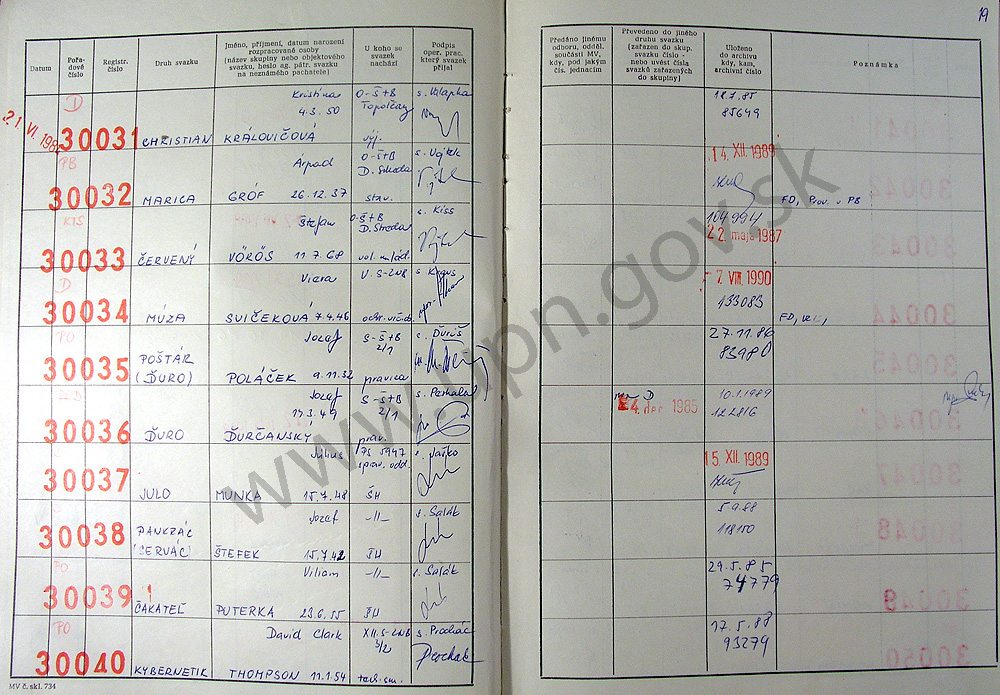 19
Datum
Pořa-
dové
číslo
Registr.
číslo
Druh svazku
Jméno, příjmení, datum narození
rozpracované osoby
(název skupiny nebo objektového
svazku, heslo ag. pátr. svazku
na neznámého pachatele)
U koho se
svazek
nachází
Podpis
oper. prac.
který svazek
přijal
Předáno jinému
odboru, odděl.
součásti MV,
kdy, pod jakým
čís. jednacím
Převedeno do jiného
druhu svazku
(zařazen do skup.
svazku číslo -
nebo uvést čísla
svazků zařazených
do skupiny)
Uloženo
do archivu
kdy, kam,
archivní číslo
Poznámka
D
Kristína
4.3.50
O-ŠtB
Topoľčany
30031
CHRISTIAN
KRÁLOVIČOVÁ
18.7.85
85649
PB
Árpád
O-ŠtB
D. Streda
s. Vojtek
30032
MARICA
GRÓF 26.12.37
stav.
14. XII. 1989
FD, Prov. v PB
KTS
Štefan
O-ŠtB
D. Streda
s. Kiss
30033
ČERVENÝ
VÖRÖS 11.7.68
vol. mlád.
104994
22. maja 1987
D
Viera
30034
MÚZA
SVIČEKOVÁ 7.4.46
-7. VIII. 1990
133083
PO
Jozef
S-ŠtB
2/1
s. Ďuriš
30035
POŠTÁR
(ĎURO)
POLÁČEK 9.11.32
pravica
27.11.86
83980
Jozef
17.3.49
S-ŠtB
2/1
30036
ĎURO
ĎURČANSKÝ
prav.
D
24. apr. 1985
10.1.1989
122816
Július
s. Jaško
30037
JULO
MUNKA 15.7.48
ŠH
15. XII. 1989
Jozef
-||-
s. Salák
30038
PANKRÁC
(SERVÁC)
ŠTEFEK 15.7.42
5.9.88
118150
PO
Viliam
-||-
s. Salák
30039
ČAKATEĽ
PUTERKA 23.6.55
29.5.85
74779
PO
David Clark
XII.S-ZNB
3/2
s. Procház
30040
KYBERNETIK
THOMPSON 11.1.54
17.5.88
93279
MV č. skl. 734
www.upn.gov.sk